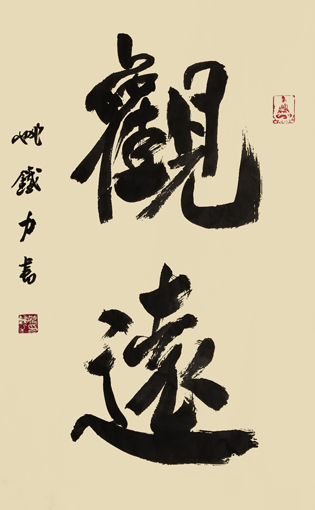 觀遠
姚鐵力書